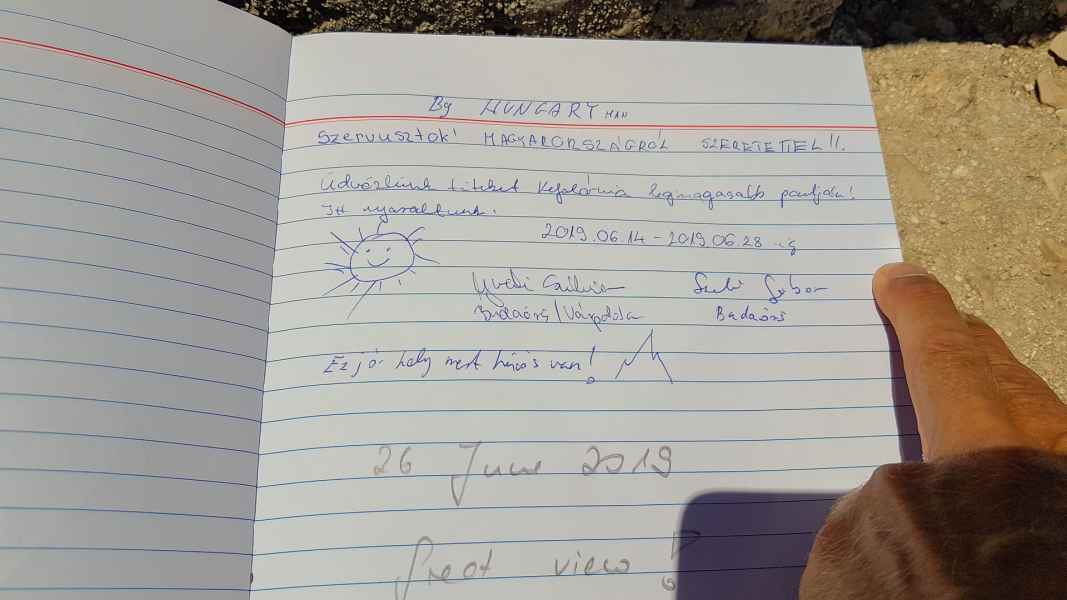 By HUNGARY MAN
Szervusztok! MAGYARORSZÁGRÓL SZERETETTEL!!.
Üdvözlünk titeket Kefalónia legmagasabb pontján!
Itt nyaraltunk.
2019.06.14 - 2019.06.28 -ig
Szilvia Gábor
Budaörs/Várpalota Budaörs
Ez jó hely mert van!
26 June 2019
Great view!